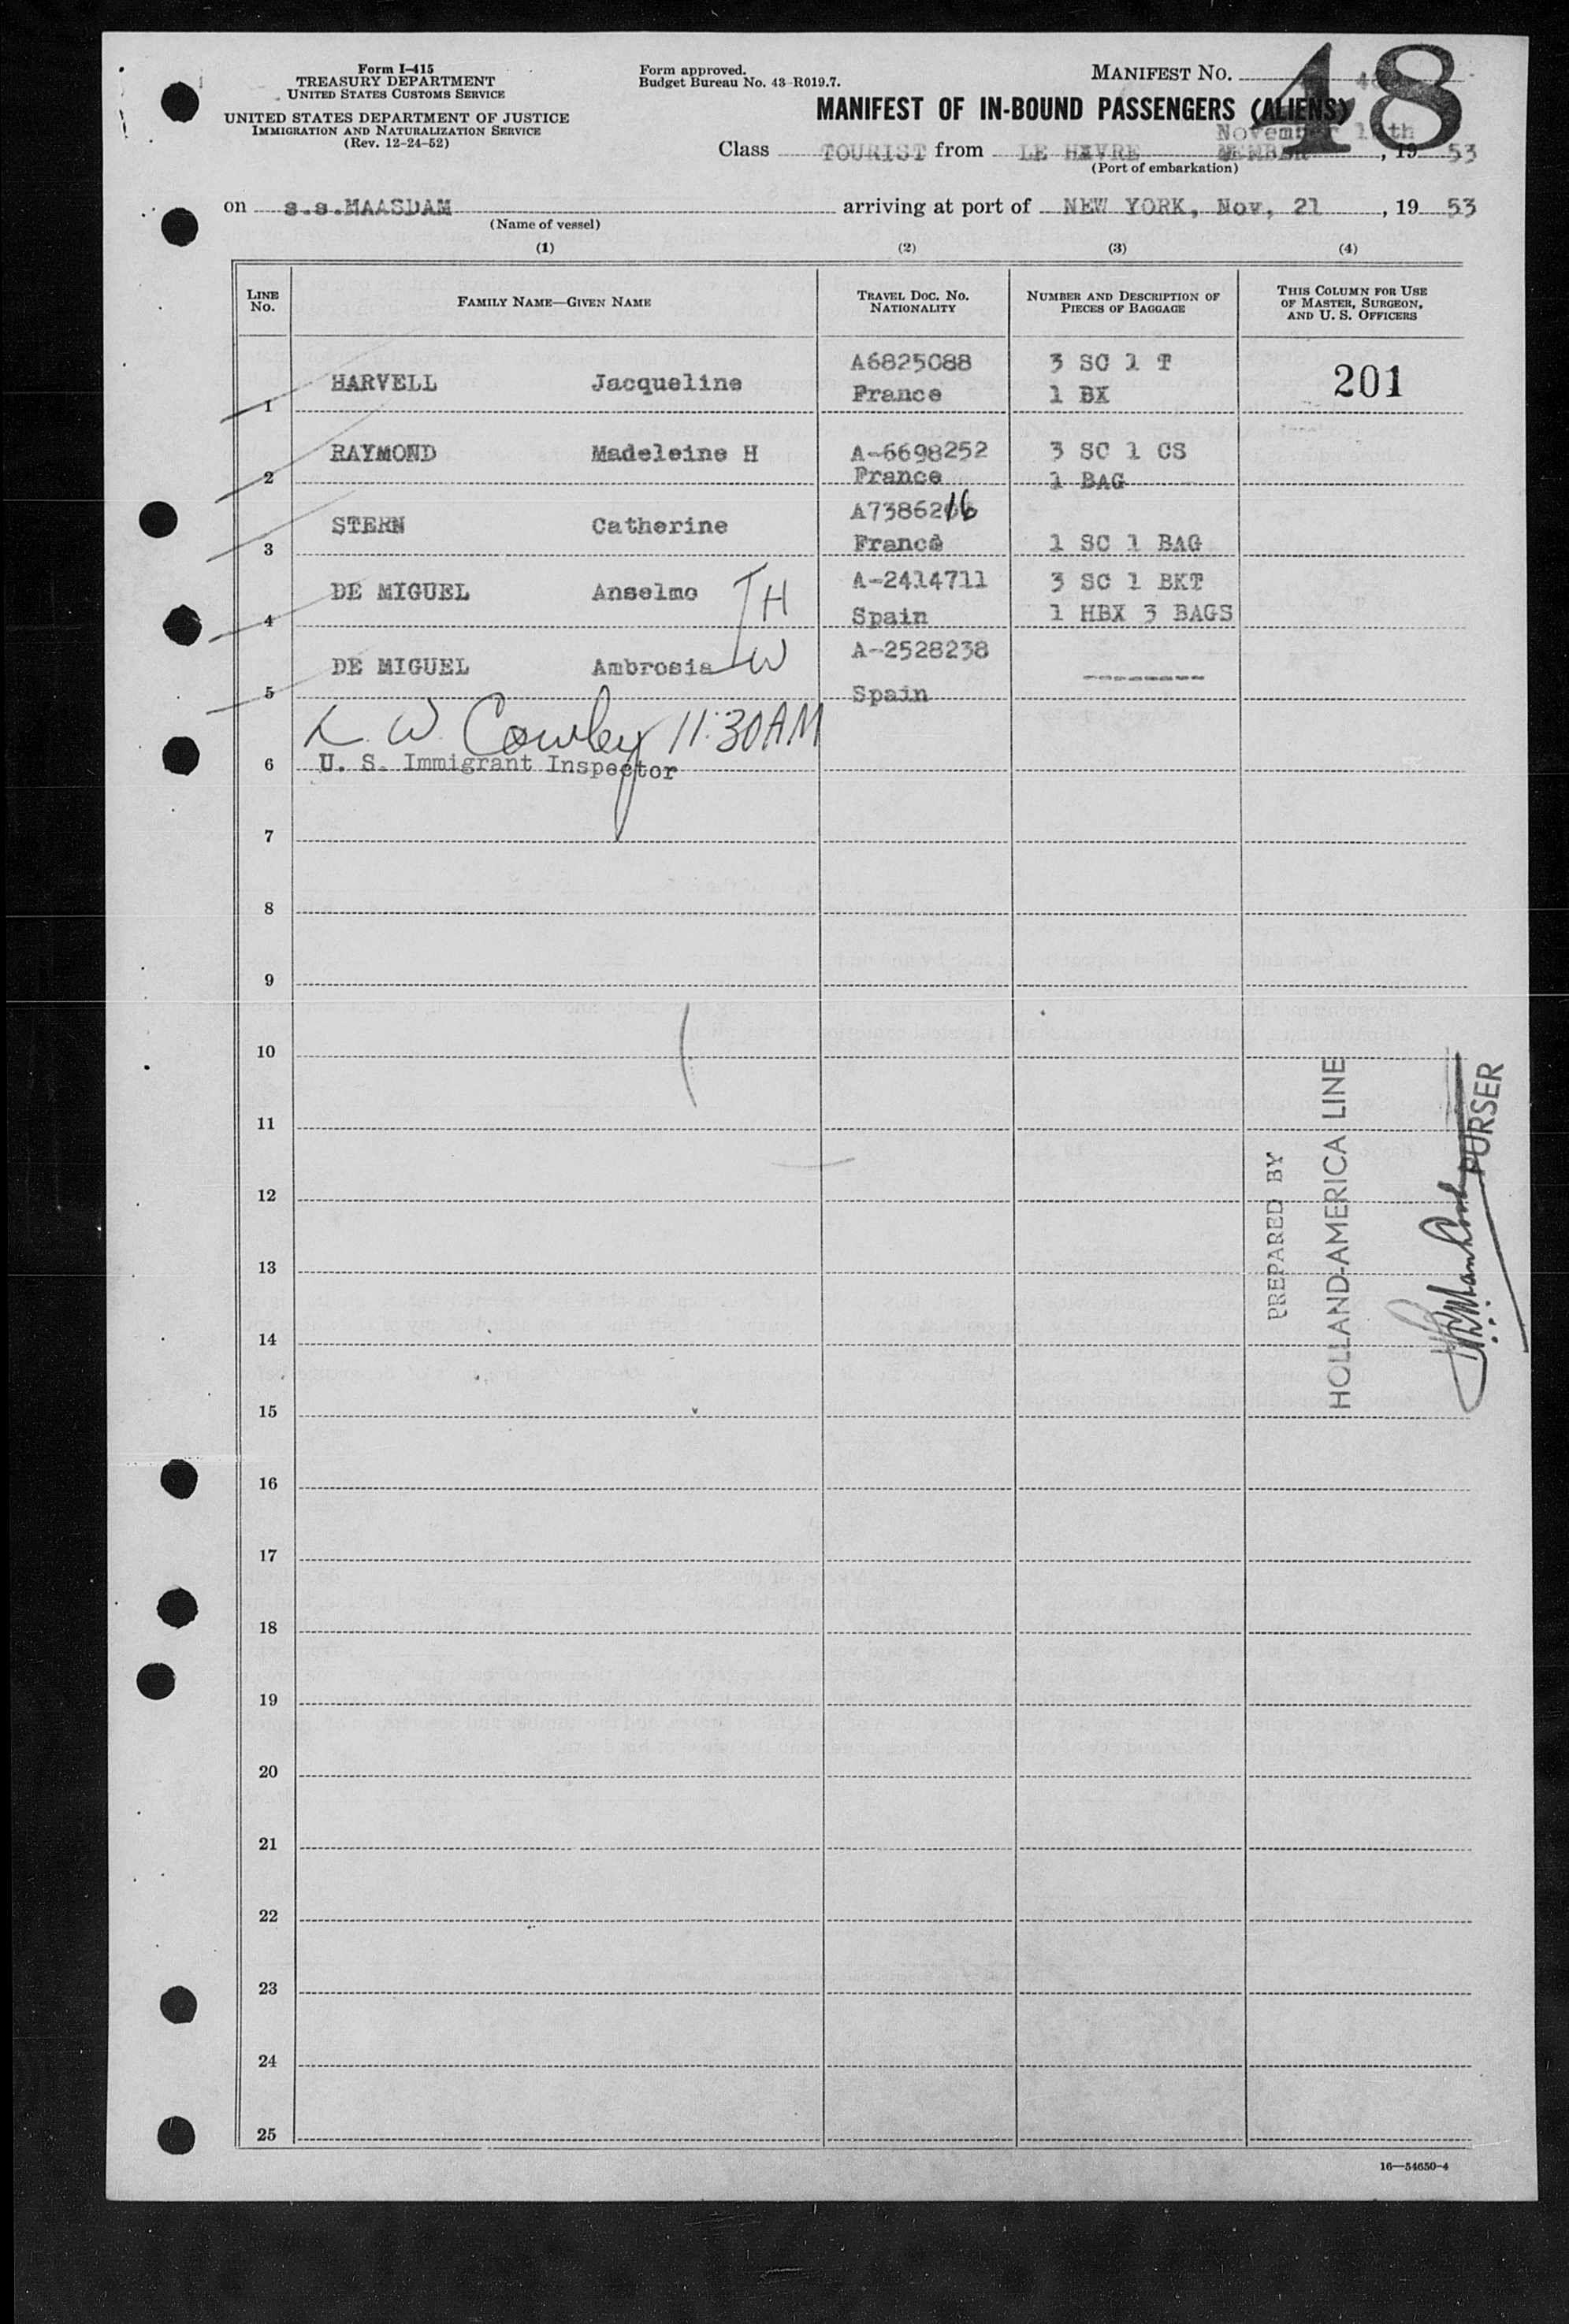 Form I-415
TREASURY DEPARTMENT
UNITED STATES CUSTOMS SERVICE
UNITED STATES DEPARTMENT OF JUSTICE
IMMIGRATION AND NATURALIZATION SERVICE
(Rev. 12-24-52)
Form approved.
Budget Bureau No. 43-R019.7.
MANIFEST NO.
48
MANIFEST OF IN-BOUND PASSENGERS (ALIENS)
November
Class TOURIST from LE HAVRE , 19 53
(Port of embarkation)
on s.s.MAASDAM arriving at port of NEW YORK, Nov, 21 , 19 53
(Name of vessel)
(1) (2) (3) (4)
LINE No. FAMILY NAME—GIVEN NAME TRAVEL DOC. NO. NATIONALITY NUMBER AND DESCRIPTION OF PIECES OF BAGGAGE THIS COLUMN FOR USE OF MASTER, SURGEON, AND U. S. OFFICERS
A6825088 3 SC 1 T
1 HARVELL Jacqueline France 1 BX 201
RAYMOND Madeleine H A-6698252 3 SC 1 CS
2 France 1 BAG
STERN Catherine A7386216
3 France 1 SC 1 BAG
DE MIGUEL Anselmo H A-2414711 3 SC 1 BKT
4 Spain 1 HBX 3 BAGS
DE MIGUEL Ambrosia W A-2528238 -------
5 Spain
W. Cowley 11:30AM
6 U. S. Immigrant Inspector
7
8
9
10
11
12
13
14
15
16
17
18
19
20
21
22
23
24
25
PREPARED BY
HOLLAND-AMERICA LINE
PURSER
16—54650-4